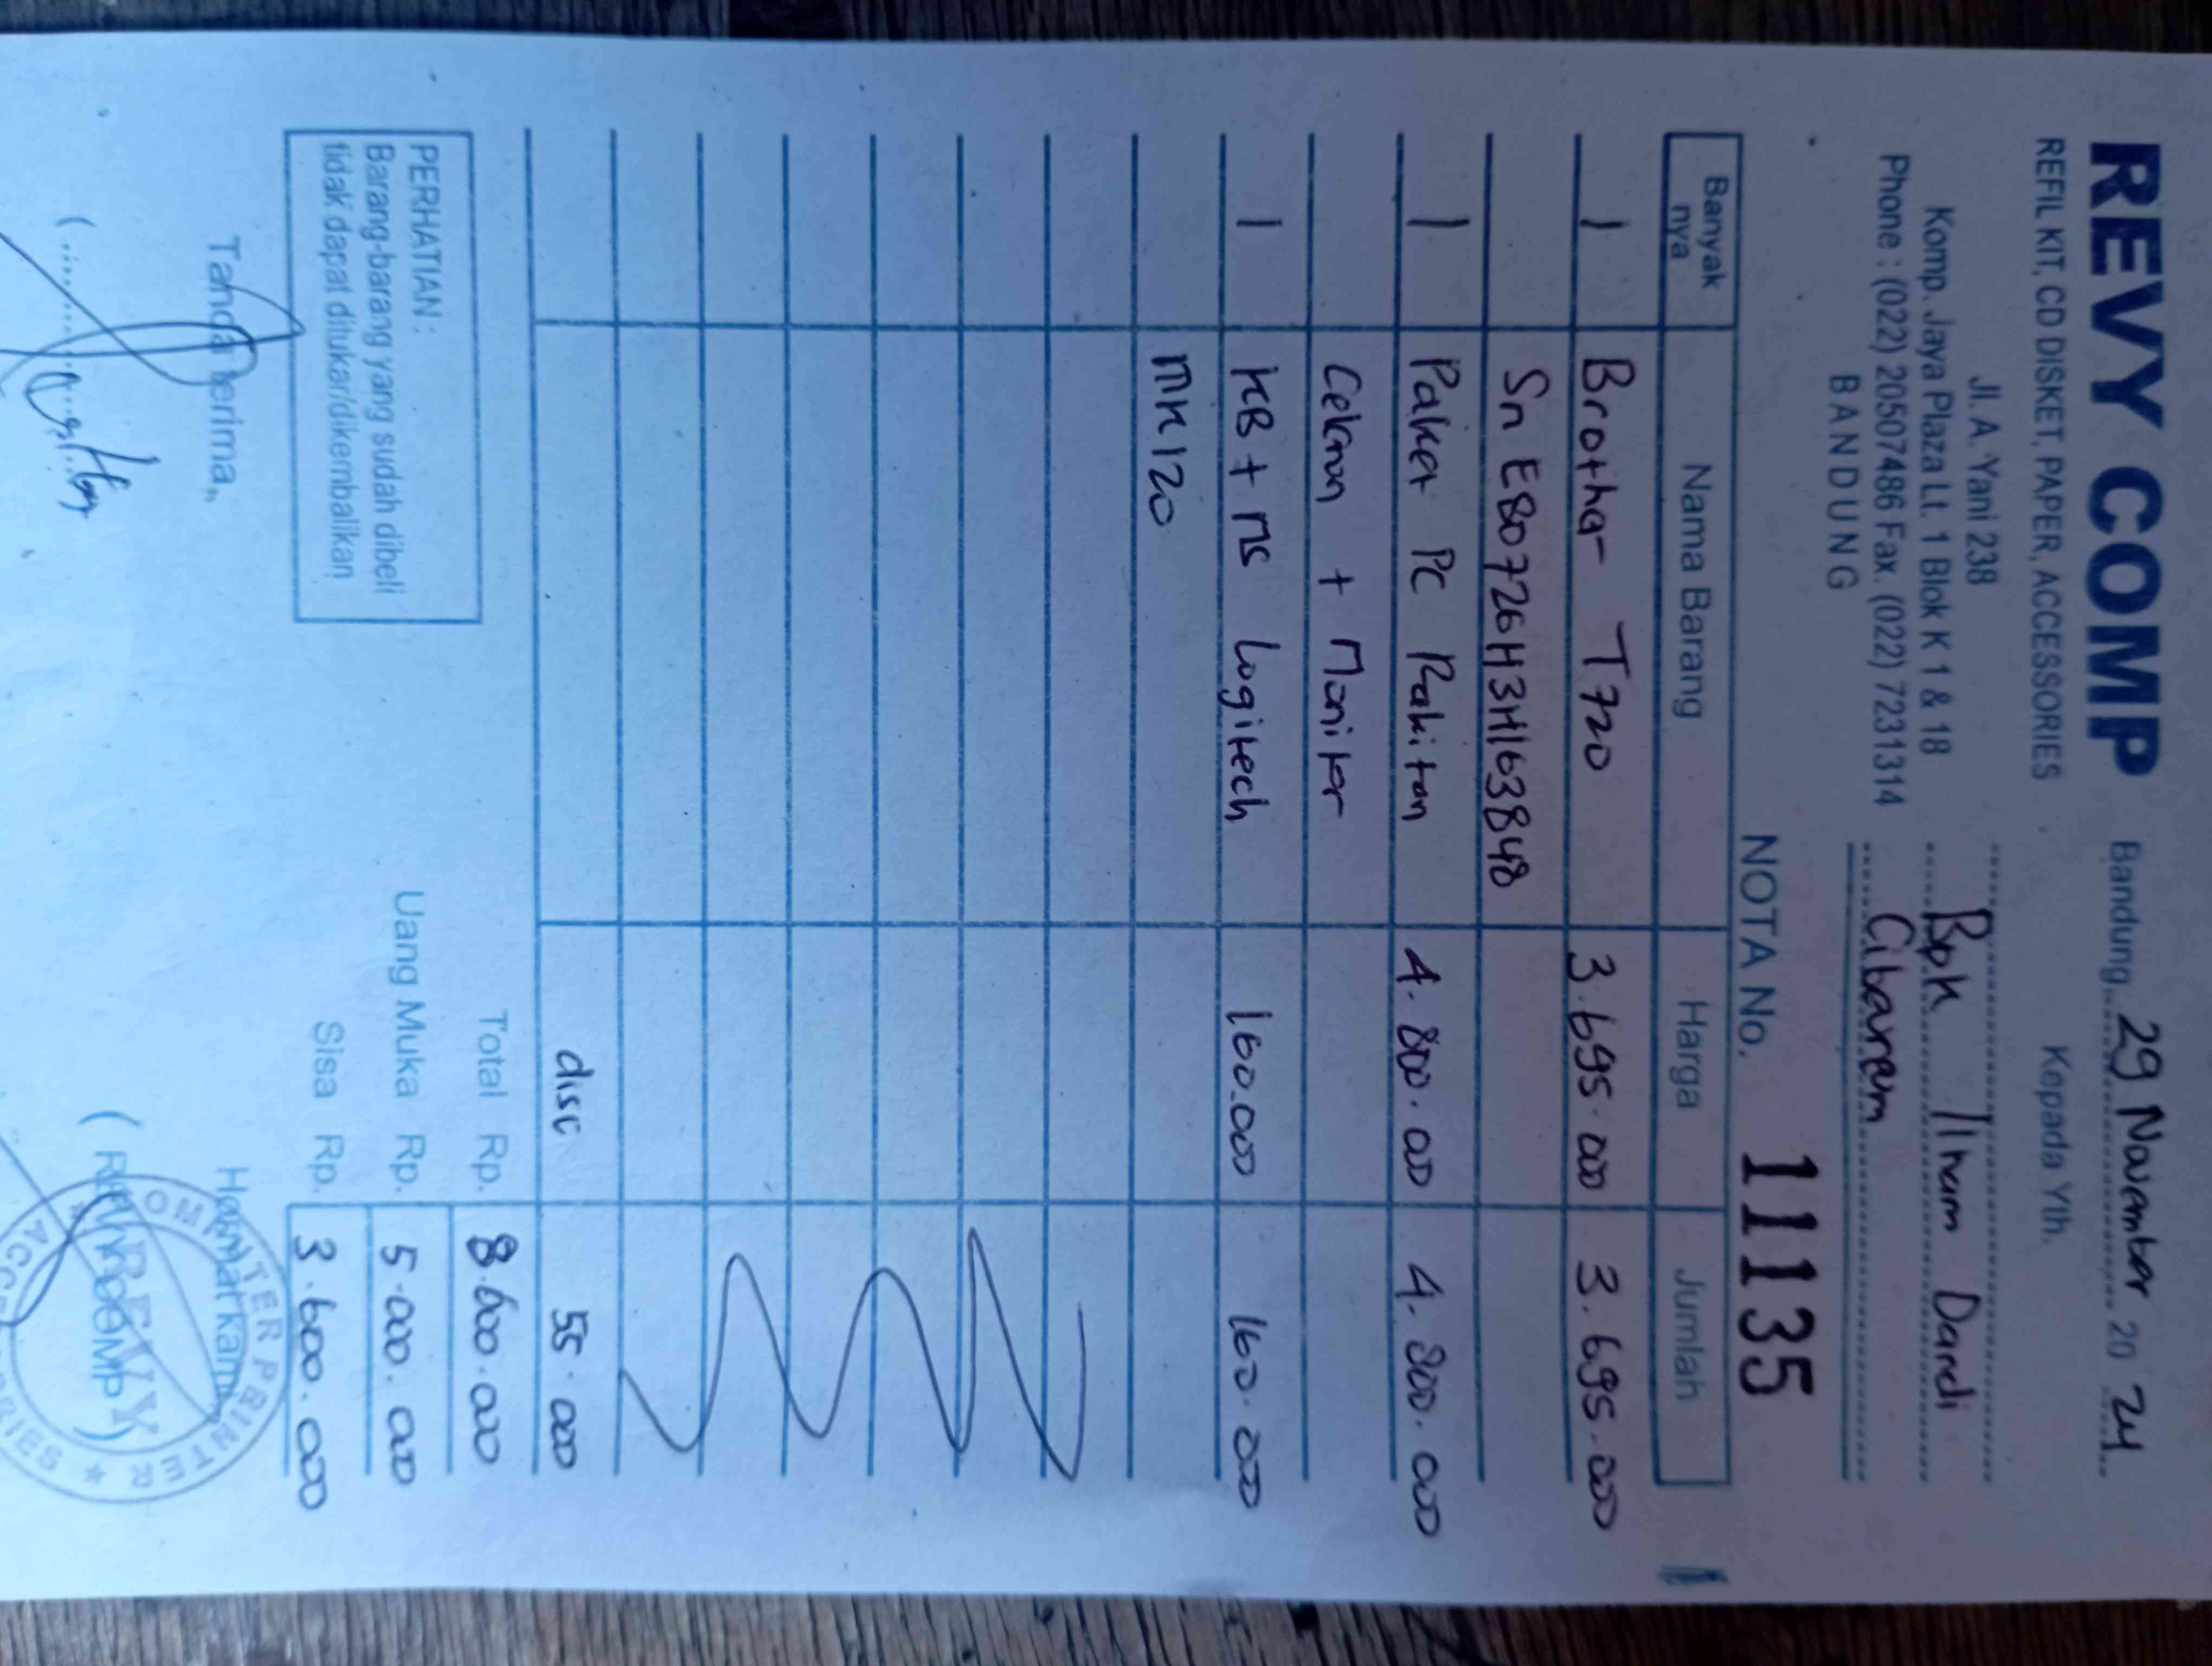 REVY COMP
REFIL KIT, CD DISKET, PAPER, ACCESSORIES
Jl. A. Yani 238
Komp. Jaya Plaza Lt. 1 Blok K 1 & 18
Phone : (022) 20507486 Fax. (022) 7231314
BANDUNG
Bandung, 29 November 20 24
Kepada Yth.
Bpk Ilham Dardi
Cibarem
NOTA No. 11135
Banyak nya Nama Barang Harga Jumlah
1 Brother T720 3.695.000 3.695.000
Sn E80726H3H163848
1 Paket PC Rakitan 4.800.000 4.800.000
Celeron + Monitor
1 KB + MS Logitech 160.000 160.000
MK120
disc 55.000
Total Rp. 8.600.000
Uang Muka Rp. 5.000.000
Sisa Rp. 3.600.000
PERHATIAN :
Barang-barang yang sudah dibeli
tidak dapat ditukar/dikembalikan
Tanda terima,
Hormat kami
( REVY COMP )
REVY